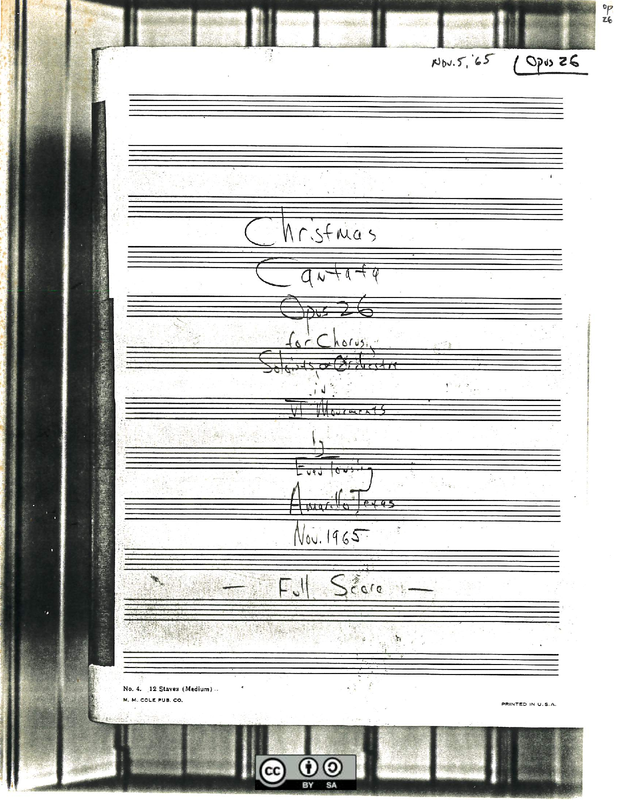 op
26
Nov. 5, '65 Opus 26
Christmas
Cantata
Opus 26
for Chorus,
Soloists, & Orchestra
in
VI Movements
by
Evan Tonsing
Amarillo Texas
Nov. 1965
— Full Score —
No. 4. 12 Staves (Medium)
M. M. COLE PUB. CO.
PRINTED IN U.S.A.
cc
BY SA